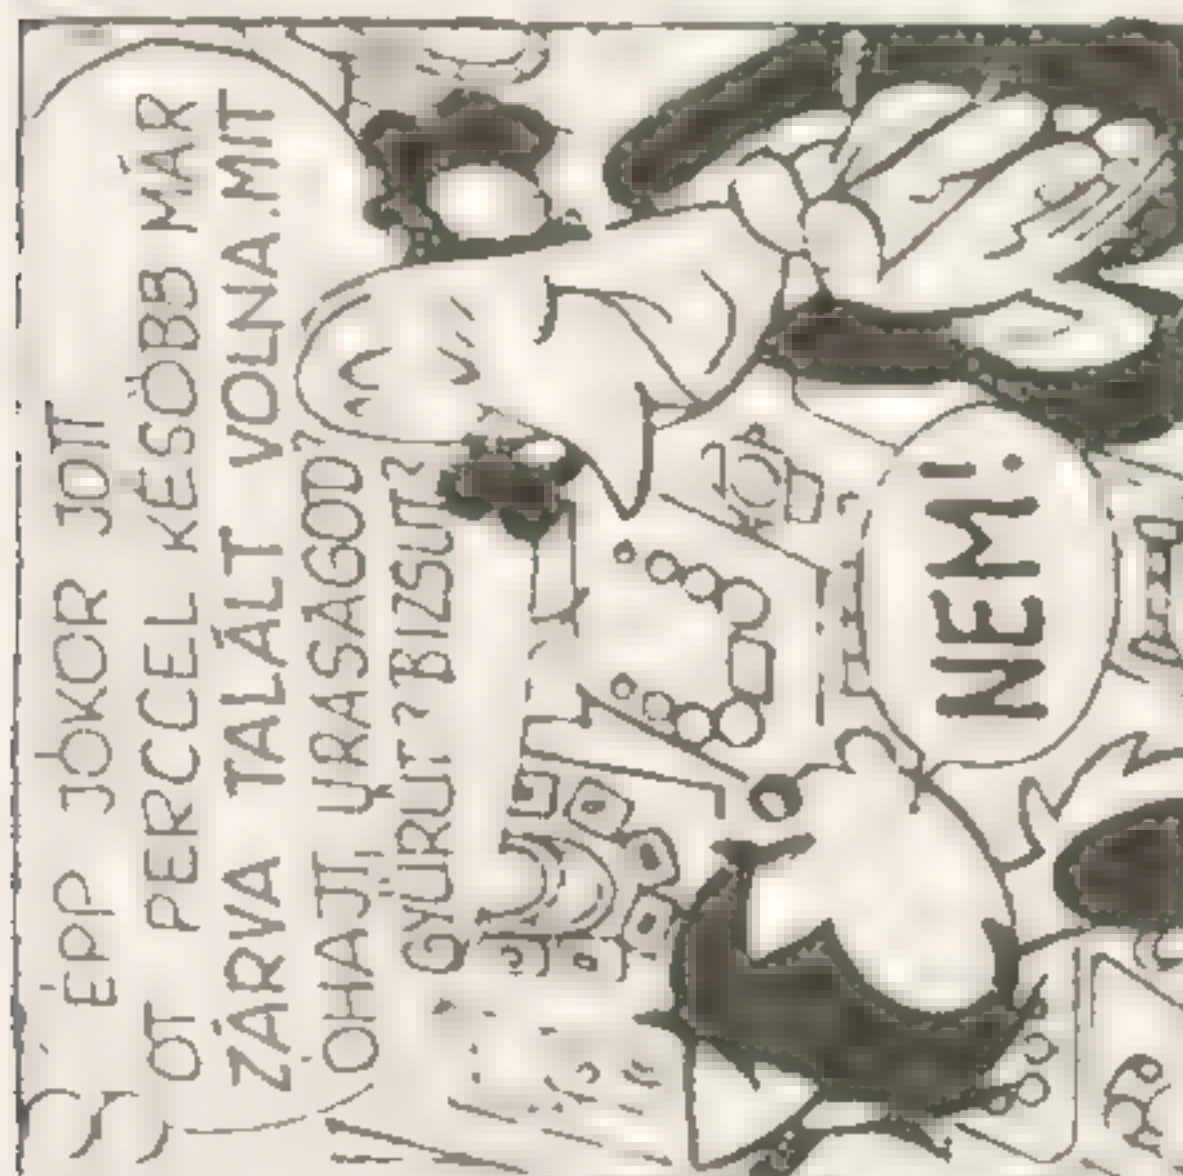 ÉPP JÓKOR JÖTT
ÖT PERCCEL KÉSŐBB MÁR
ZÁRVA TALÁLT VOLNA. MIT
ÓHAJT, URASÁGOD?
GYŰRŰT? BIZSUT?
NEM!